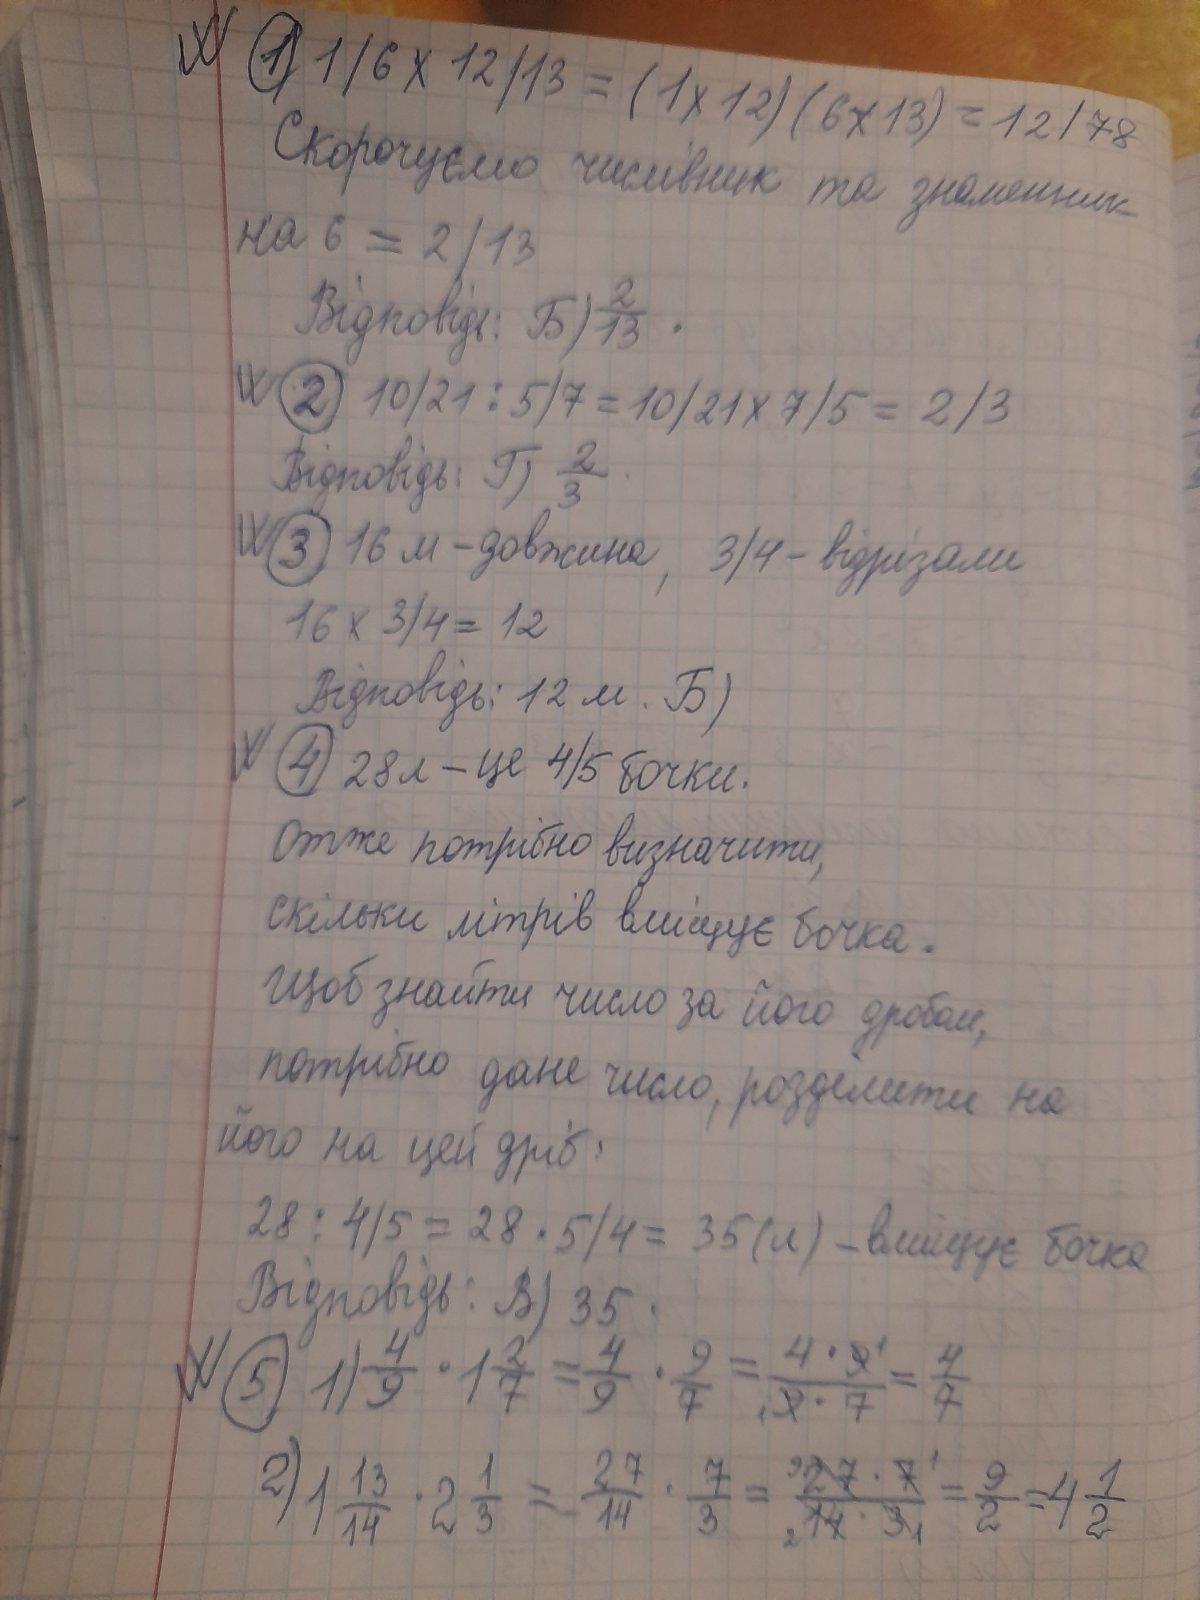 № 1) 1/6 x 12/13 = (1x12) (6x13) = 12/78
Скорочуємо чисмівник та знаменник
на 6 = 2/13
Відповідь: Б) 2/13.
№ 2) 10/21 : 5/7 = 10/21 x 7/5 = 2/3
Відповідь: Г) 2/3.
№ 3) 16 м - довжина, 3/4 - відрізали
16 x 3/4 = 12
Відповідь: 12 м. Б)
№ 4) 28л - це 4/5 бочки.
Отже потрібно визначити,
скільки літрів вміщує бочка.
Щоб знайти число за його дробом,
потрібно дане число, розділити на
його на цей дріб:
28 : 4/5 = 28 · 5/4 = 35(л) - вміщує бочка
Відповідь: В) 35.
№ 5) 1) 4/9 · 1 2/7 = 4/9 · 9/7 = 4 · 9 1 / 1 9 · 7 = 4/7
2) 1 13/14 · 2 1/3 = 27/14 · 7/3 = 9 27 · 7 1 / 2 14 · 3 1 = 9/2 = 4 1/2